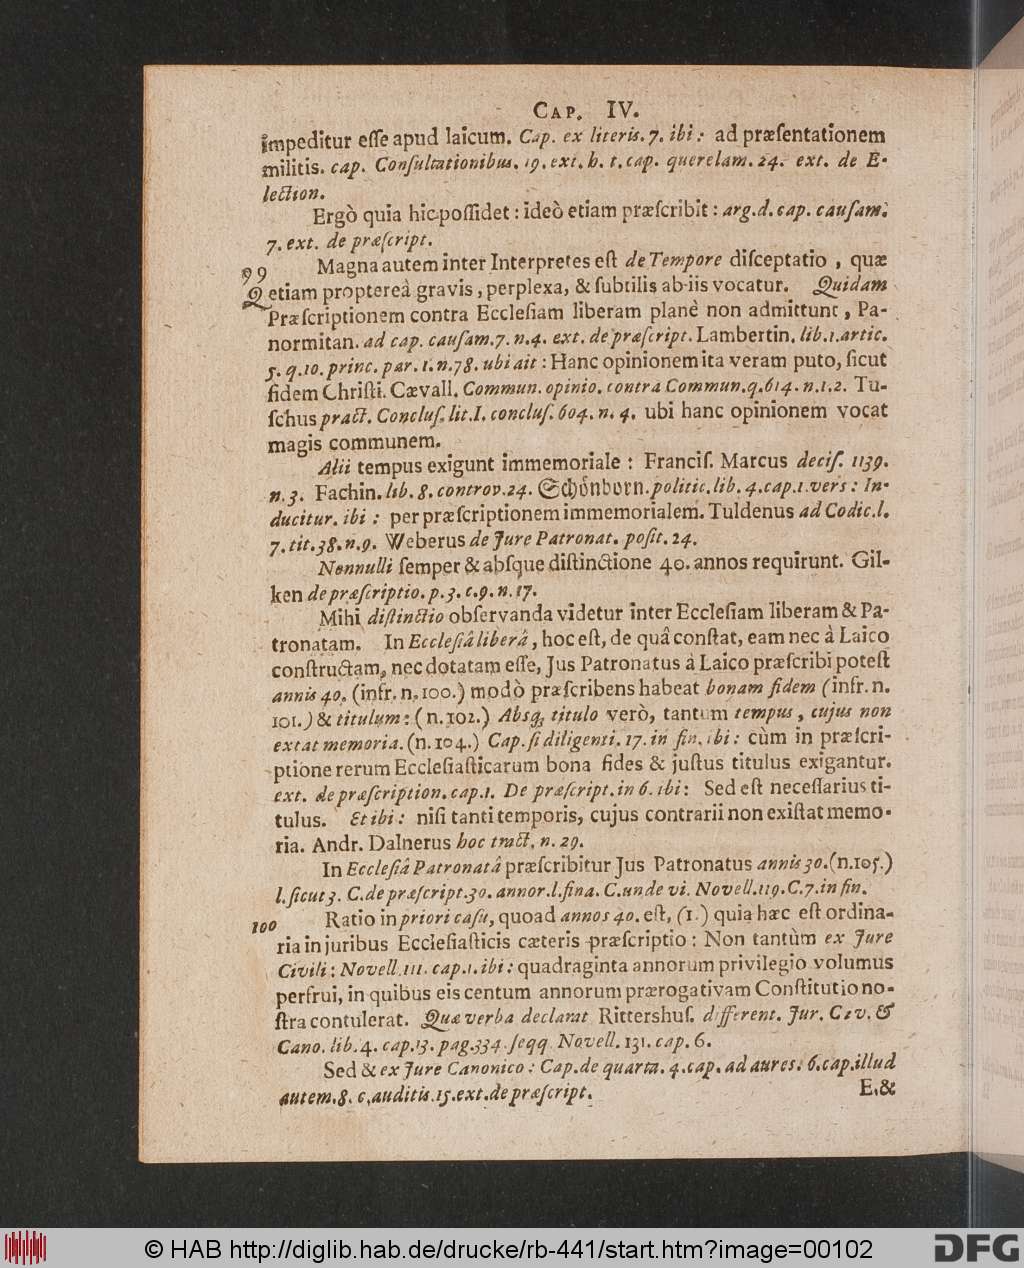 CAP. IV.
impeditur eſſe apud laicum. Cap. ex literis. 7. ibi: ad præſentationem
militis. cap. Conſultationibus. 19. ext. h. t. cap. querelam. 24. ext. de E-
lection.
Ergò quia hic poſſidet: ideò etiam præſcribit: arg. d. cap. cauſam.
7. ext. de præſcript.
99 Magna autem inter Interpretes eſt de Tempore diſceptatio, quæ
& etiam proptereà gravis, perplexa, & ſubtilis ab iis vocatur. Quidam
Præſcriptionem contra Eccleſiam liberam planè non admittunt, Pa-
normitan. ad cap. cauſam. 7. n. 4. ext. de præſcript. Lambertin. lib. 1. artic.
5. q. 10. princ. par. 1. n. 78. ubi ait: Hanc opinionem ita veram puto, ſicut
fidem Chriſti. Cævall. Commun. opinio. contra Commun. q. 614. n. 1. 2. Tu-
ſchus pract. Concluſ. lit. I. concluſ. 604. n. 4. ubi hanc opinionem vocat
magis communem.
Alii tempus exigunt immemoriale: Franciſ. Marcus deciſ. 1139.
n. 3. Fachin. lib. 8. controv. 24. Schönborn. politic. lib. 4. cap. 1. vers: In-
ducitur. ibi: per præſcriptionem immemorialem. Tuldenus ad Codic. l.
7. tit. 38. n. 9. Weberus de Jure Patronat. poſit. 24.
Nonnulli ſemper & abſque diſtinctione 40. annos requirunt. Gil-
ken de præſcriptio. p. 3. c. 9. n. 17.
Mihi diſtinctio obſervanda videtur inter Eccleſiam liberam & Pa-
tronatam. In Eccleſiâ liberâ, hoc eſt, de quâ conſtat, eam nec à Laico
conſtructam, nec dotatam eſſe, Jus Patronatus à Laico præſcribi poteſt
annis 40. (infr. n. 100.) modò præſcribens habeat bonam fidem (infr. n.
101.) & titulum: (n. 102.) Absq; titulo verò, tantum tempus, cujus non
extat memoria. (n. 104.) Cap. ſi diligenti. 17. in fin. ibi: cùm in præſcri-
ptione rerum Eccleſiaſticarum bona fides & juſtus titulus exigantur.
ext. de præſcription. cap. 1. De præſcript. in 6. ibi: Sed eſt neceſſarius ti-
tulus. Et ibi: niſi tanti temporis, cujus contrarii non exiſtat memo-
ria. Andr. Dalnerus hoc tract. n. 29.
In Eccleſiâ Patronatâ præſcribitur Jus Patronatus annis 30. (n. 105.)
l. ſicut 3. C. de præſcript. 30. annor. l. fina. C. unde vi. Novell. 119. C. 7. in fin.
100 Ratio in priori caſu, quoad annos 40. eſt, (1.) quia hæc eſt ordina-
ria in juribus Eccleſiaſticis cæteris præſcriptio: Non tantùm ex Jure
Civili: Novell. 111. cap. 1. ibi: quadraginta annorum privilegio volumus
perfrui, in quibus eis centum annorum prærogativam Conſtitutio no-
ſtra contulerat. Quæ verba declarat Rittershuſ. different. Jur. Civ. &
Cano. lib. 4. cap. 13. pag. 334. ſeqq. Novell. 131. cap. 6.
Sed & ex Jure Canonico: Cap. de quarta. 4. cap. ad aures. 6. cap. illud
autem. 8. c. auditis. 15. ext. de præſcript.
E. &
© HAB http://diglib.hab.de/drucke/rb-441/start.htm?image=00102
DFG